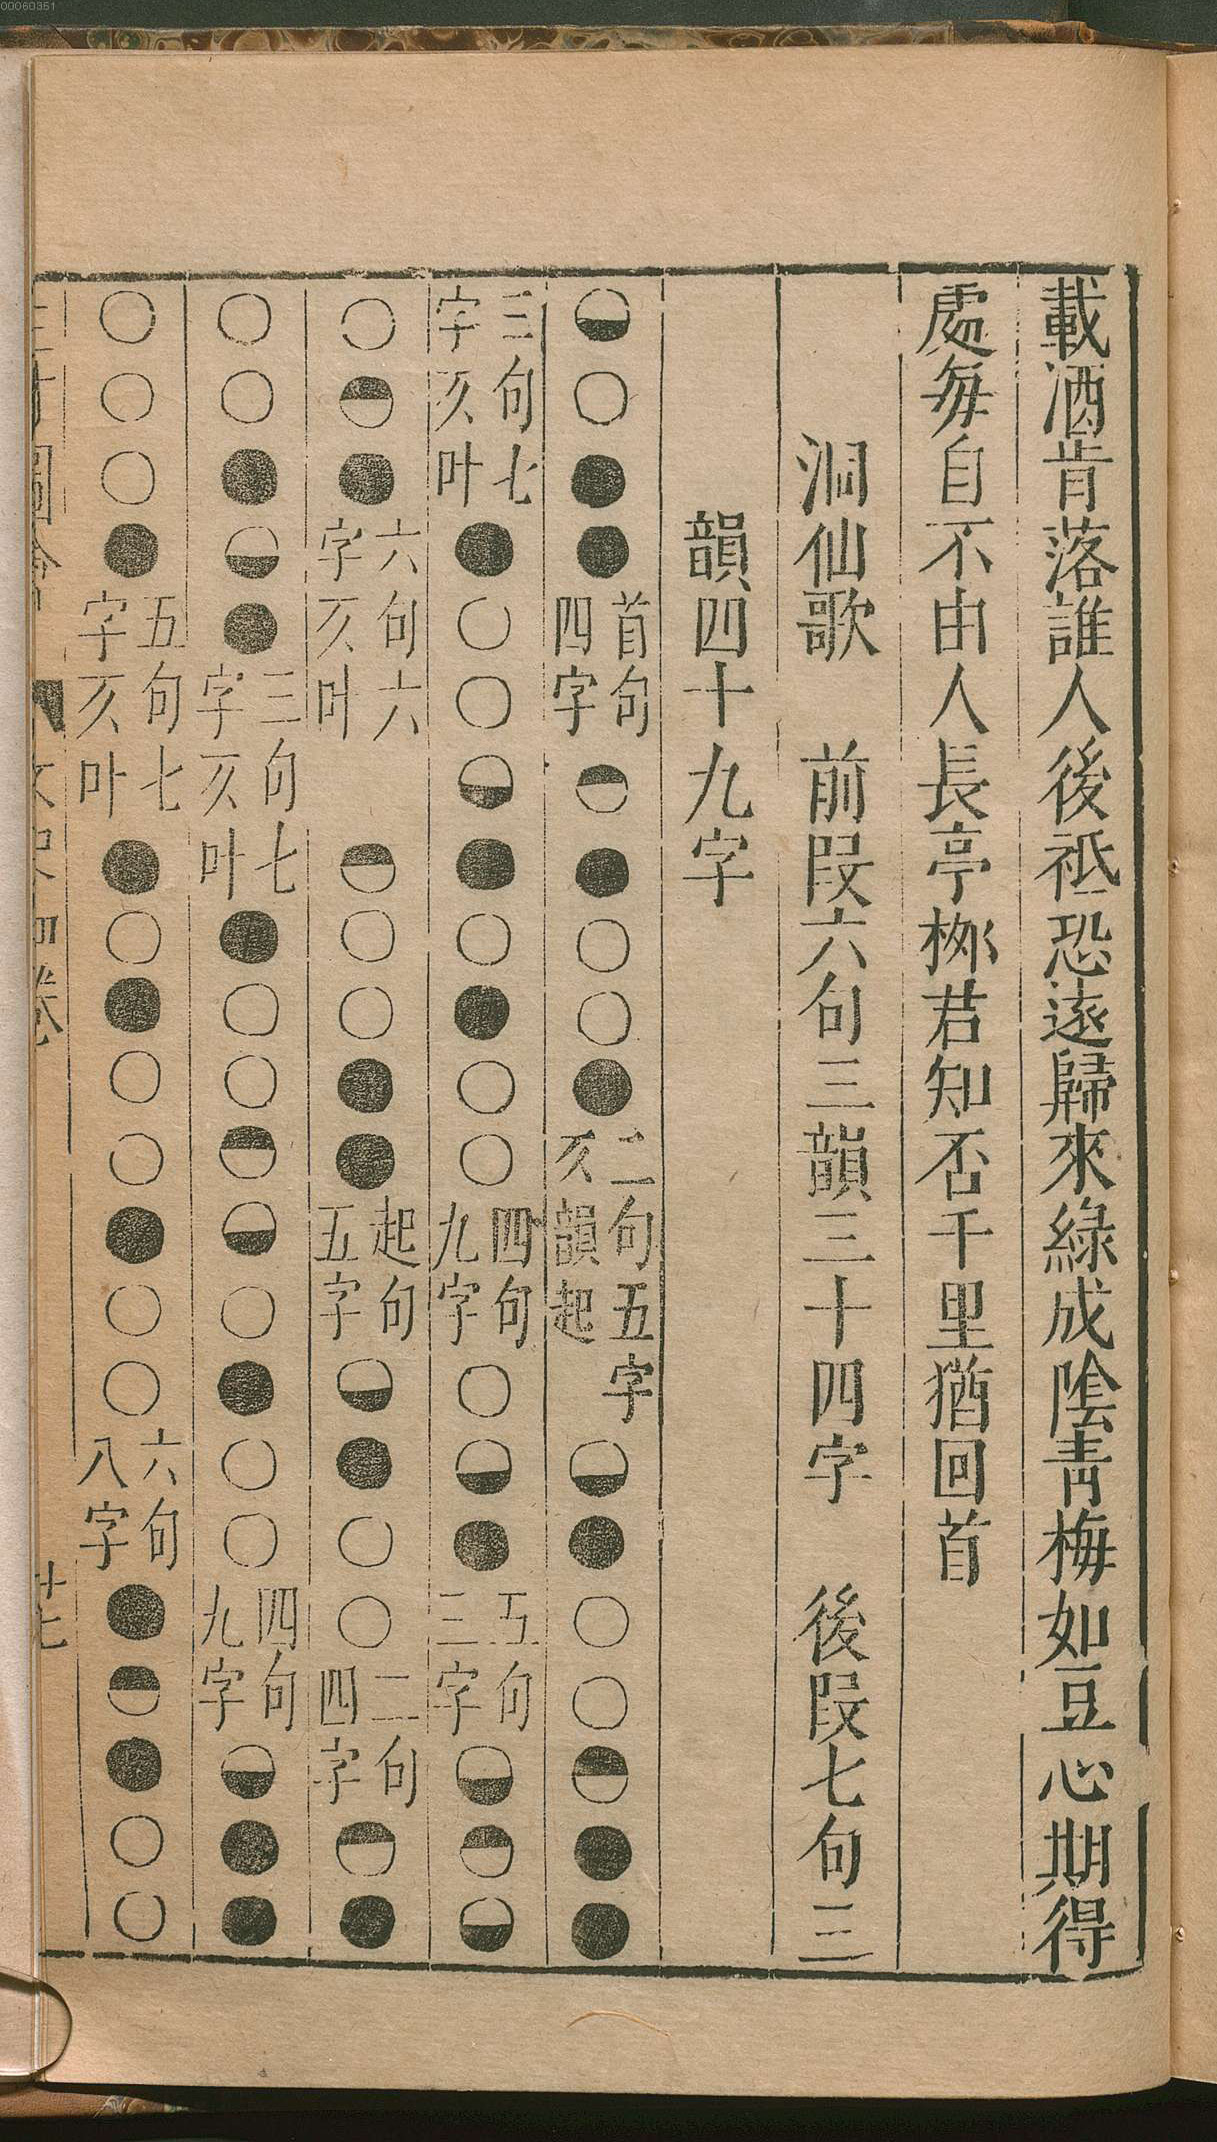 00060351
載酒肯落誰人後祗恐遠歸來綠成陰青梅如豆心期得
處每自不由人長亭栁君知否千里猶回首
洞仙歌 前段六句三韻三十四字 後段七句三
韻四十九字
首句四字 二句五字仄韻起
三句七字仄叶 四句九字 五句三字
六句六字仄叶 起句五字 二句四字
三句七字仄叶 四句九字
五句七字仄叶 六句八字